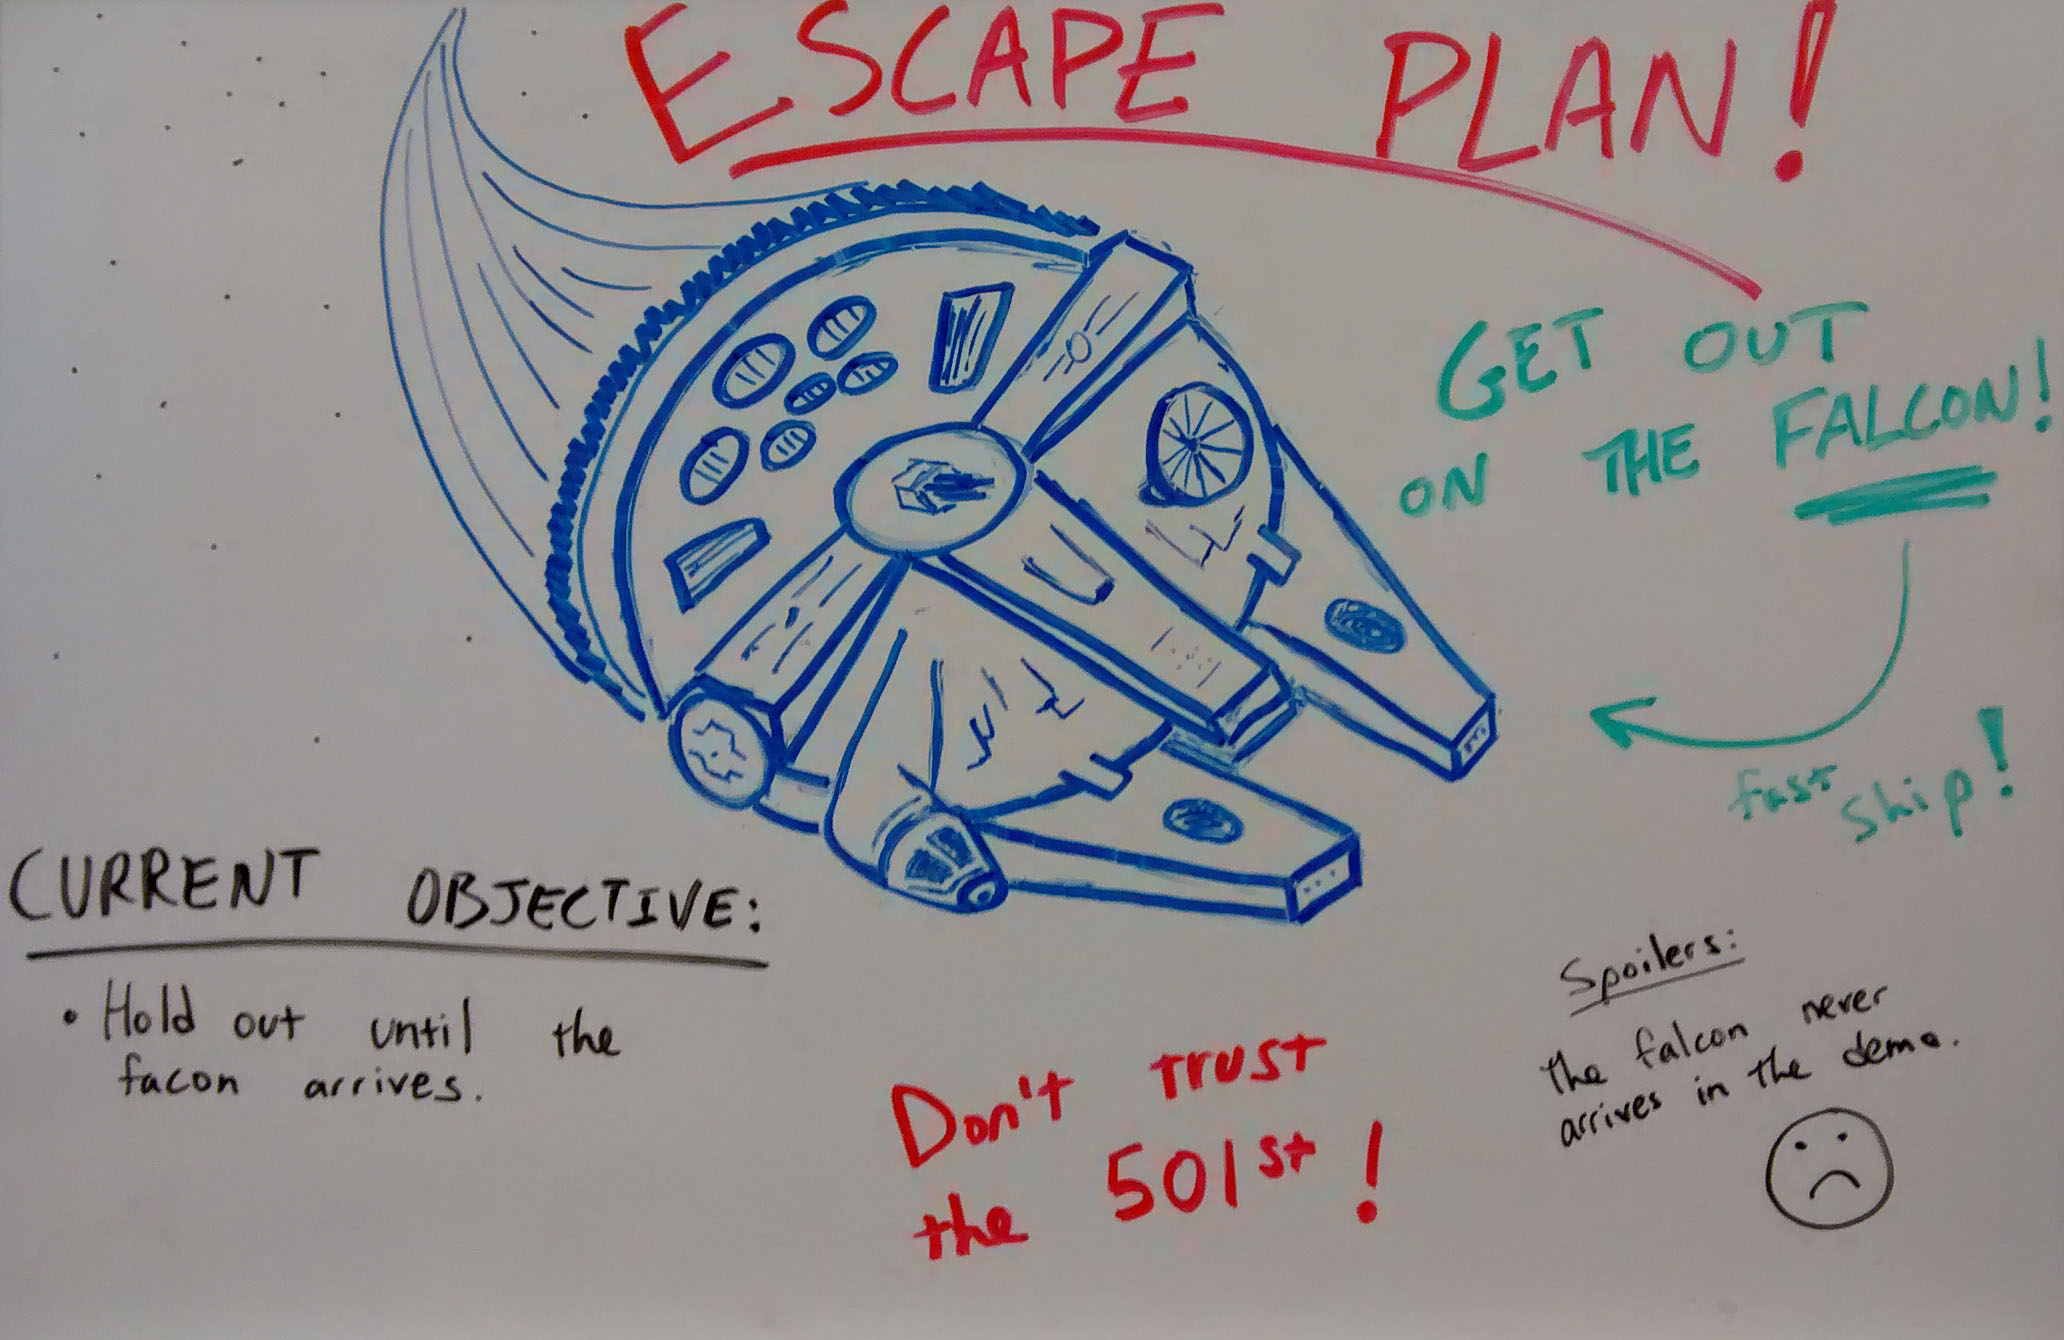 ESCAPE PLAN!
GET OUT
ON THE FALCON!
fast ship!
CURRENT OBJECTIVE:
• Hold out until the
facon arrives.
Don't trust
the 501st!
Spoilers:
the falcon never
arrives in the demo.